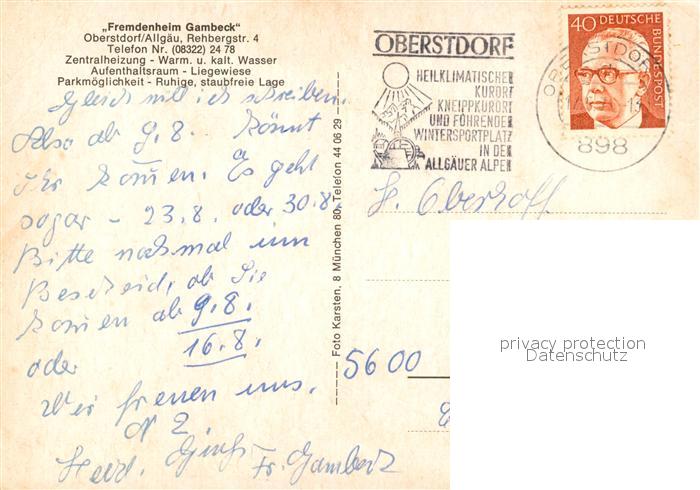 „Fremdenheim Gambeck"
Oberstdorf/Allgäu, Rehbergstr. 4
Telefon Nr. (08322) 24 78
Zentralheizung - Warm. u. kalt. Wasser
Aufenthaltsraum - Liegewiese
Parkmöglichkeit - Ruhige, staubfreie Lage
Gleich will ich schreiben.
Also ab 9.8. könnt
ihr kommen. Es geht
sogar - 23.8. oder 30.8.
Bitte nochmal um
Bescheid, ob Sie
kommen ab 9.8.
oder 16.8.
Wir freuen uns.
Herzl. Gruß
Fr. Gambeck
Foto Karsten, 8 München 80, Telefon 44 06 29
OBERSTDORF
HEILKLIMATISCHER
KURORT
KNEIPPKURORT
UND FÜHRENDER
WINTERSPORTPLATZ
IN DEN
ALLGÄUER ALPEN
OBERSTDORF
898
40 DEUTSCHE
BUNDESPOST
Oberhoff
5600
privacy protection
Datenschutz